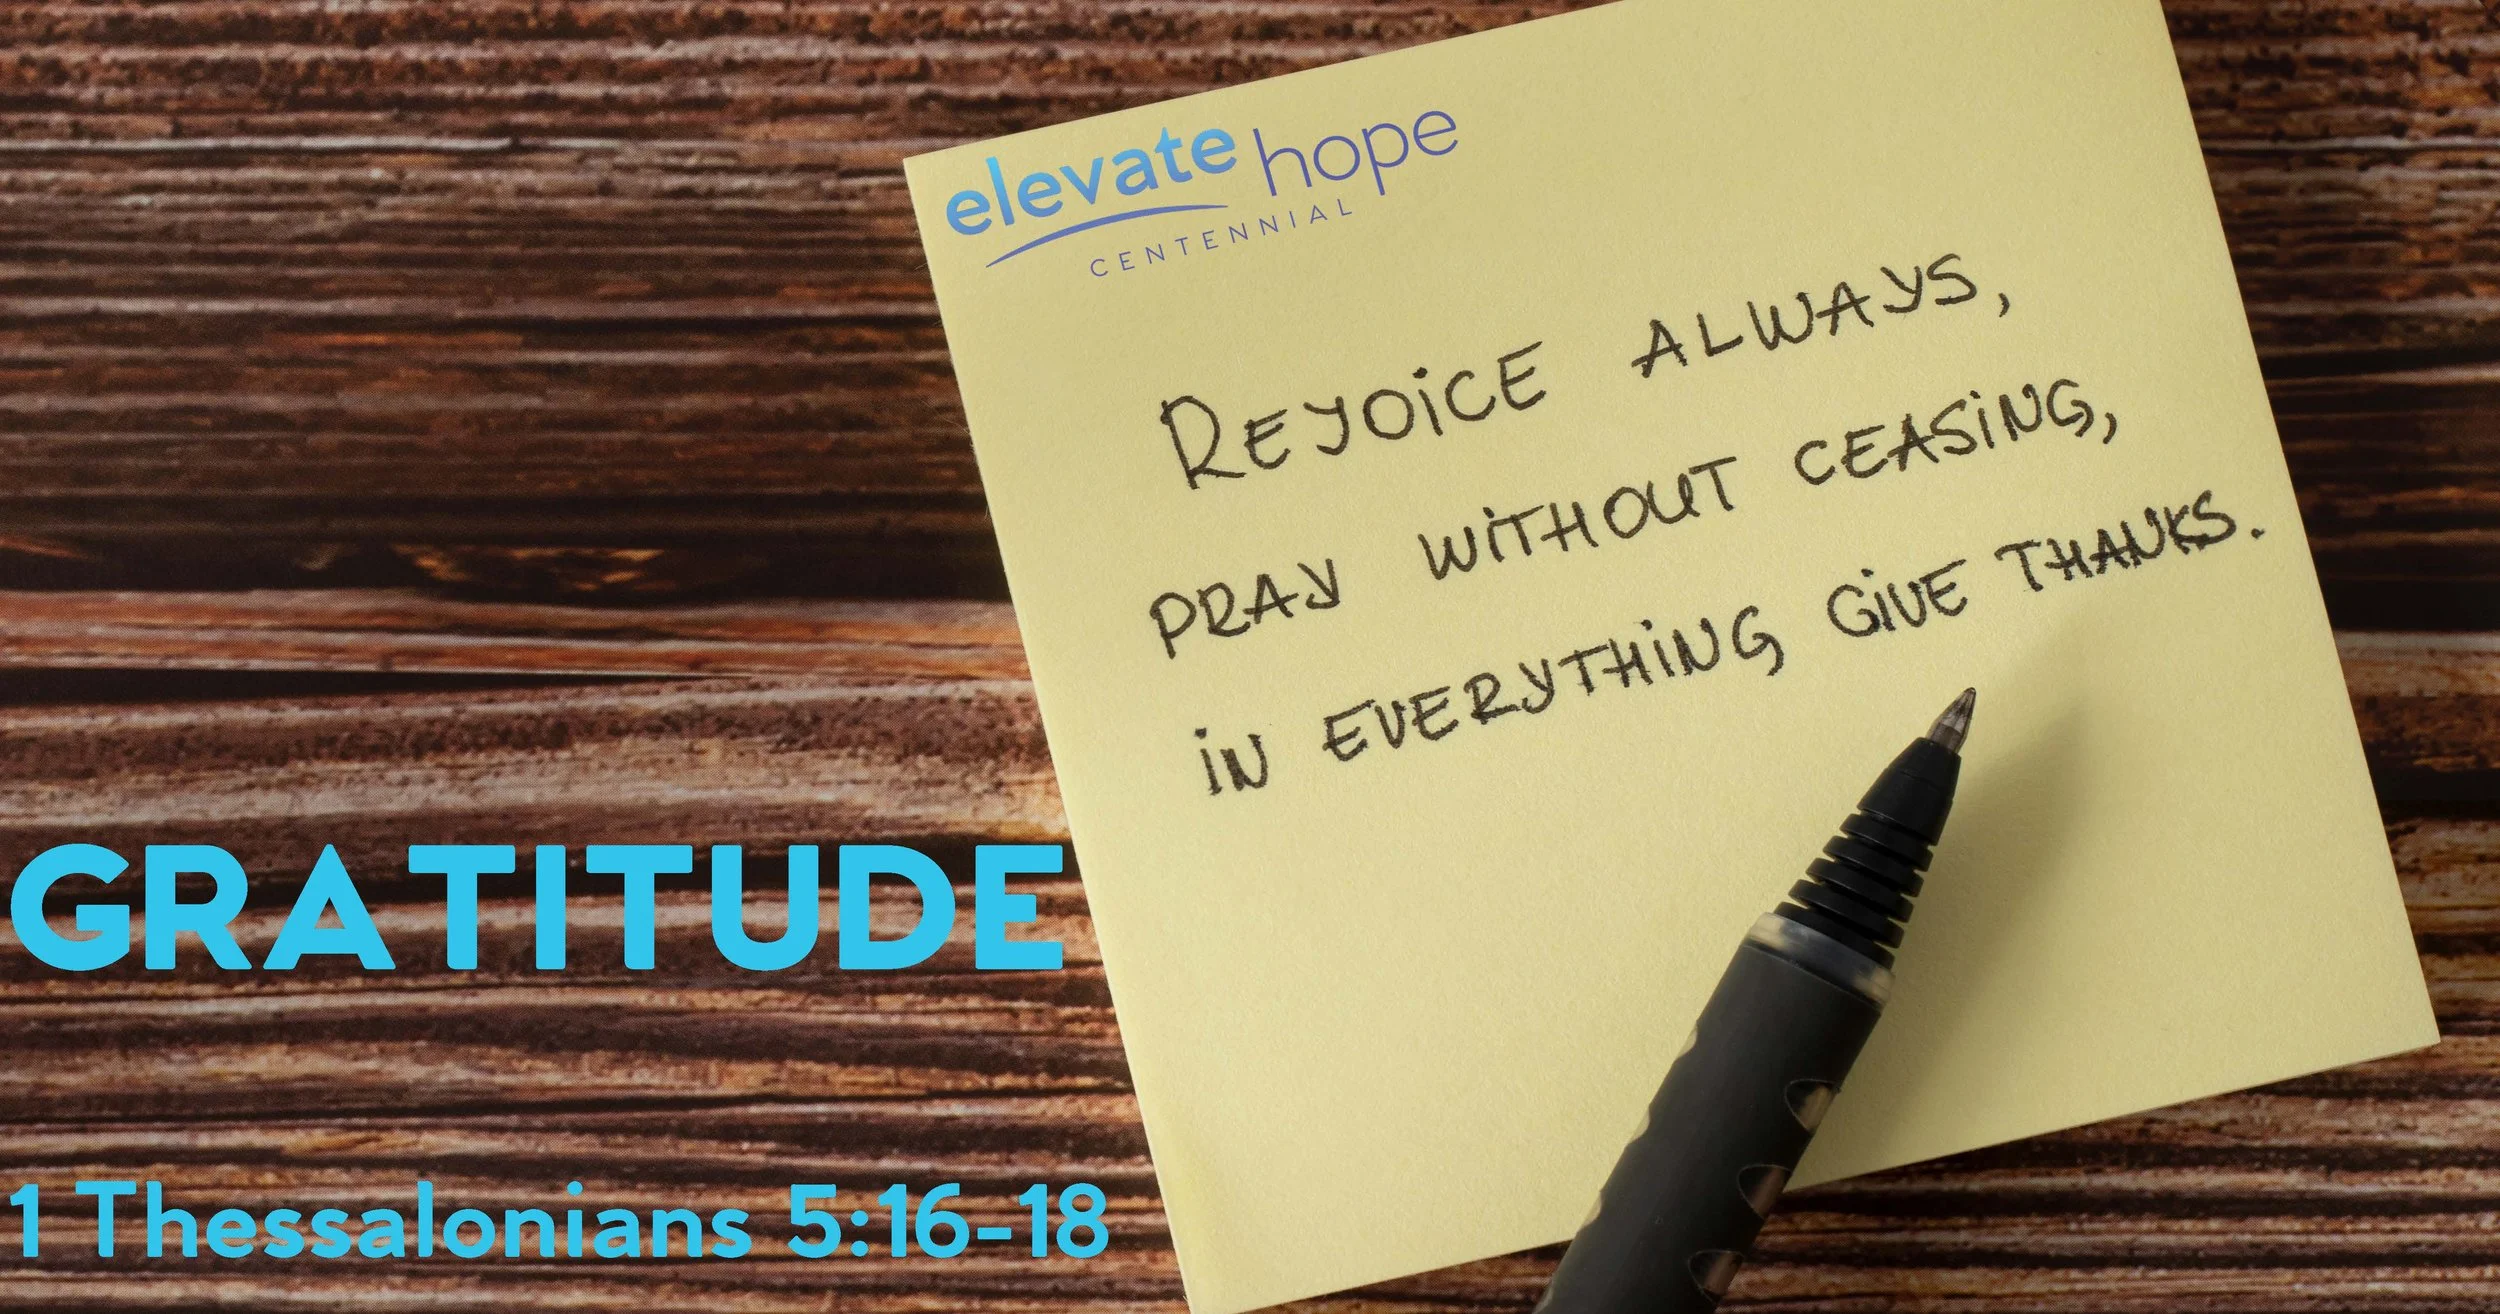 elevate hope
CENTENNIAL
REJOiCE ALWAYS,
PRAY WiTHOUT CEASiNG,
iN EVERYTHiNG GiVE THANKS.
GRATITUDE
1 Thessalonians 5:16-18